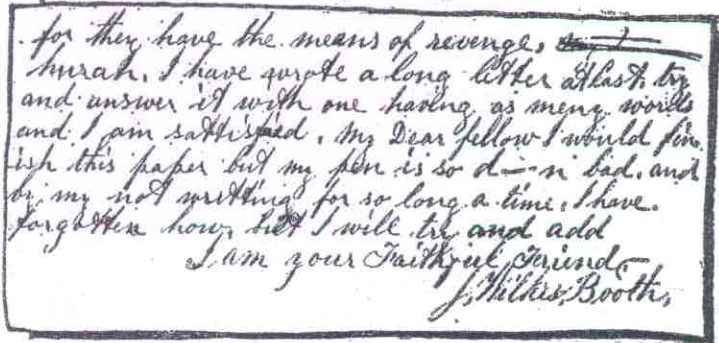 for they have the means of revenge.
hurah. I have wrote a long letter at last. try
and answer it with one having as meny words
and I am sattisfied. My Dear fellow I would fin
ish this paper but my pen is so d—n bad. and
by my not writting for so long a time. I have.
forgotten how, but I will try and add
I am your Faithful Friend—
J. Wilkes Booth.